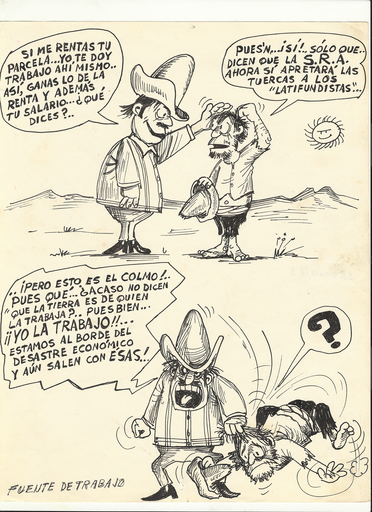 SI ME RENTAS TU
PARCELA...YO, TE DOY
TRABAJO AHÍ MISMO..
ASI, GANAS LO DE LA
RENTA Y ADEMÁS
TU SALARIO...¿QUÉ
DICES?..
PUES'N,..¡SÍ!.. SÓLO QUE..
DICEN QUE LA S.R.A.
AHORA SÍ APRETARÁ LAS
TUERCAS A LOS
"LATIFUNDISTAS"...
..¡PERO ESTO ES EL COLMO!..
PUES QUÉ...¿ACASO NO DICEN
"QUE LA TIERRA ES DE QUIEN
LA TRABAJA?.. PUES BIEN...
¡¡YO LA TRABAJO!!...
ESTAMOS AL BORDE DEL
DESASTRE ECONÓMICO
Y AÚN SALEN CON ESAS.!
?
FUENTE DE TRABAJO